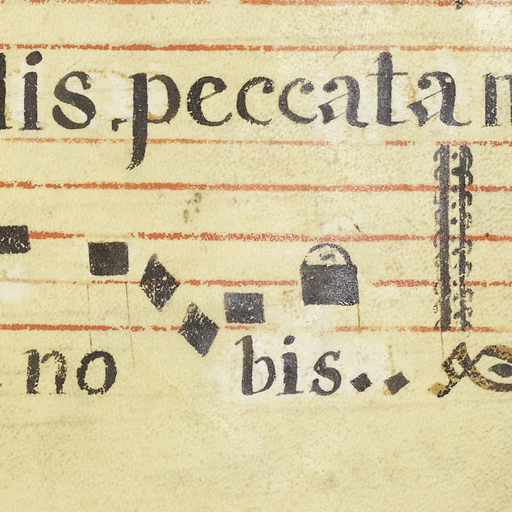 lis. peccata m
no bis..